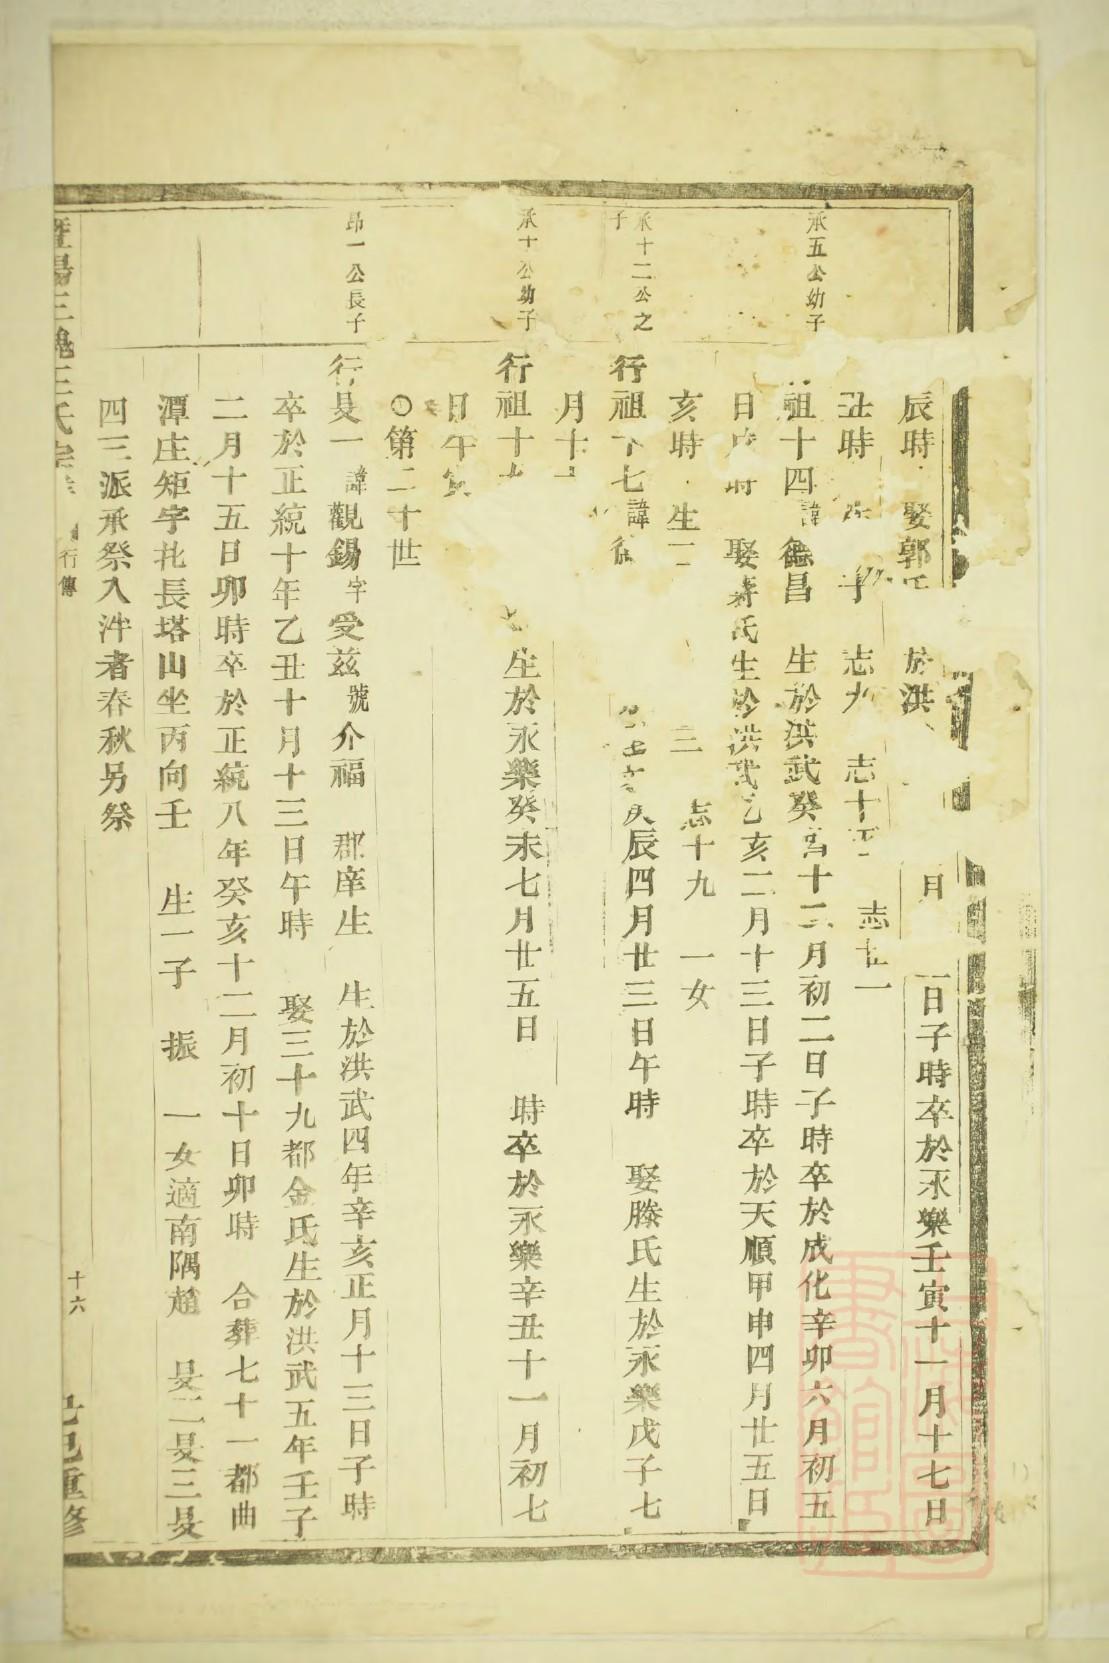 辰時 娶郭 於洪 月 一日子時卒於永樂壬寅十一月十七日
丑時 子 志九 志十五 志 一
承五公幼子
祖十四諱德昌 生於洪武癸酉十二月初二日子時卒於成化辛卯六月初五
日 時 娶蔣氏生於洪武乙亥二月十三日子時卒於天順甲申四月廿五日
亥時 生 三 志十九 一女
承十二公之
子
行祖十七諱 辰四月廿三日午時 娶滕氏生於永樂戊子七
月十
承十公幼子
行祖十 生於永樂癸未七月廿五日 時卒於永樂辛丑十一月初七
日午
○第二十世
昂一公長子
行旻一諱觀錫字受茲號介福 郡庠生 生於洪武四年辛亥正月十三日子時
卒於正統十年乙丑十月十三日午時 娶三十九都金氏生於洪武五年壬子
二月十五日卯時卒於正統八年癸亥十二月初十日卯時 合葬七十一都曲
潭庄矩字玭長塔山坐丙向壬 生一子 振 一女適南隅趙 旻二旻三旻
四三派承祭入泮者春秋另祭
暨陽三槐王氏宗 行傳 十六 己巳重修